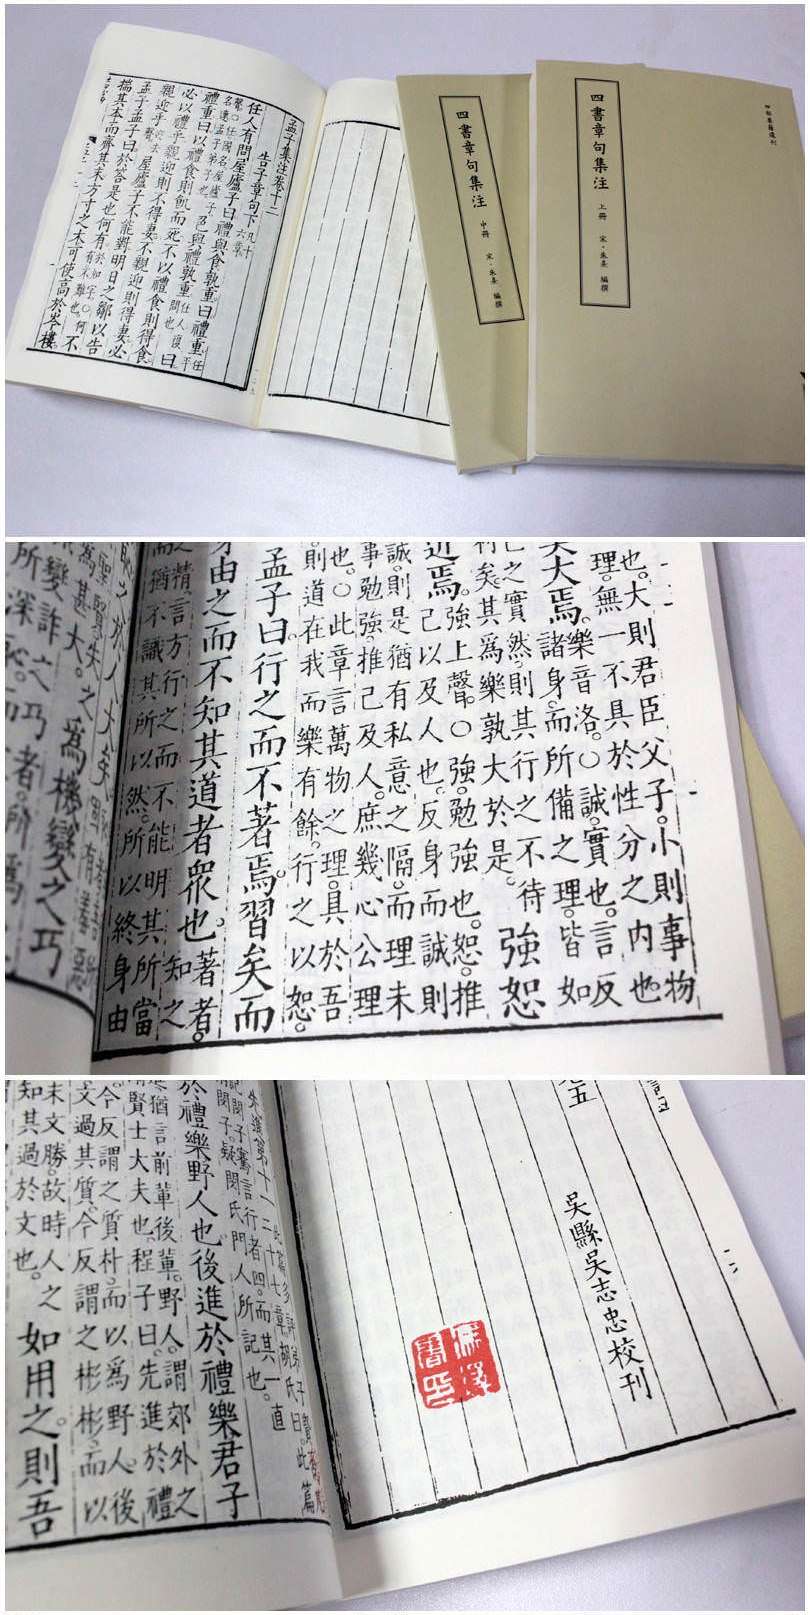 四部要籍選刊
四書章句集注 上冊 宋·朱熹 編撰
四書章句集注 中冊 宋·朱熹 編撰
孟子集注卷十二
告子章句下 凡十六章
任人有問屋廬子曰禮與食孰重曰禮重 任平
聲○任國名屋廬子名連孟子弟子也 色與禮孰重 任人復問也 曰
禮重曰以禮食則飢而死不以禮食則得食
必以禮乎親迎則不得妻不親迎則得妻必
親迎乎 迎去聲 屋廬子不能對明日之鄒以告
孟子孟子曰於答是也何有 於如字○何有不難也 不
揣其本而齊其末方寸之木可使高於岑樓
也。大則君臣父子。小則事物
理。無一不具於性分之內也。
大焉。 樂音洛。○誠。實也。言反
諸身。而所備之理。皆如
之實然。則其行之不待
矣。其為樂孰大於是。 強恕
近焉。 強上聲。○強。勉強也。恕。推
己以及人也。反身而誠則
誠。則是猶有私意之隔。而理未
事勉強。推己及人。庶幾心公理
也。○此章言萬物之理。具於吾
則道在我而樂有餘。行之以恕。
孟子曰。行之而不著焉。習矣而
由之而不知其道者眾也。 著者。知之
精。言方行之而不能明其所當
而猶不識其所以然。所以終身由
為機變之巧
吳縣吳志忠校刊
先進第十一 此篇多評弟子賢
二十七章胡氏曰此篇
閔子騫言行者四。而其一直
閔子。疑閔氏門人所記也。
於禮樂野人也後進於禮樂君子
猶言前輩後輩。野人。謂郊外之
賢士大夫也。程子曰。先進於禮
今反謂之質朴。而以為野人。後
文過其質。今反謂之彬彬。而以
末文勝。故時人之
知其過於文也。 如用之。則吾